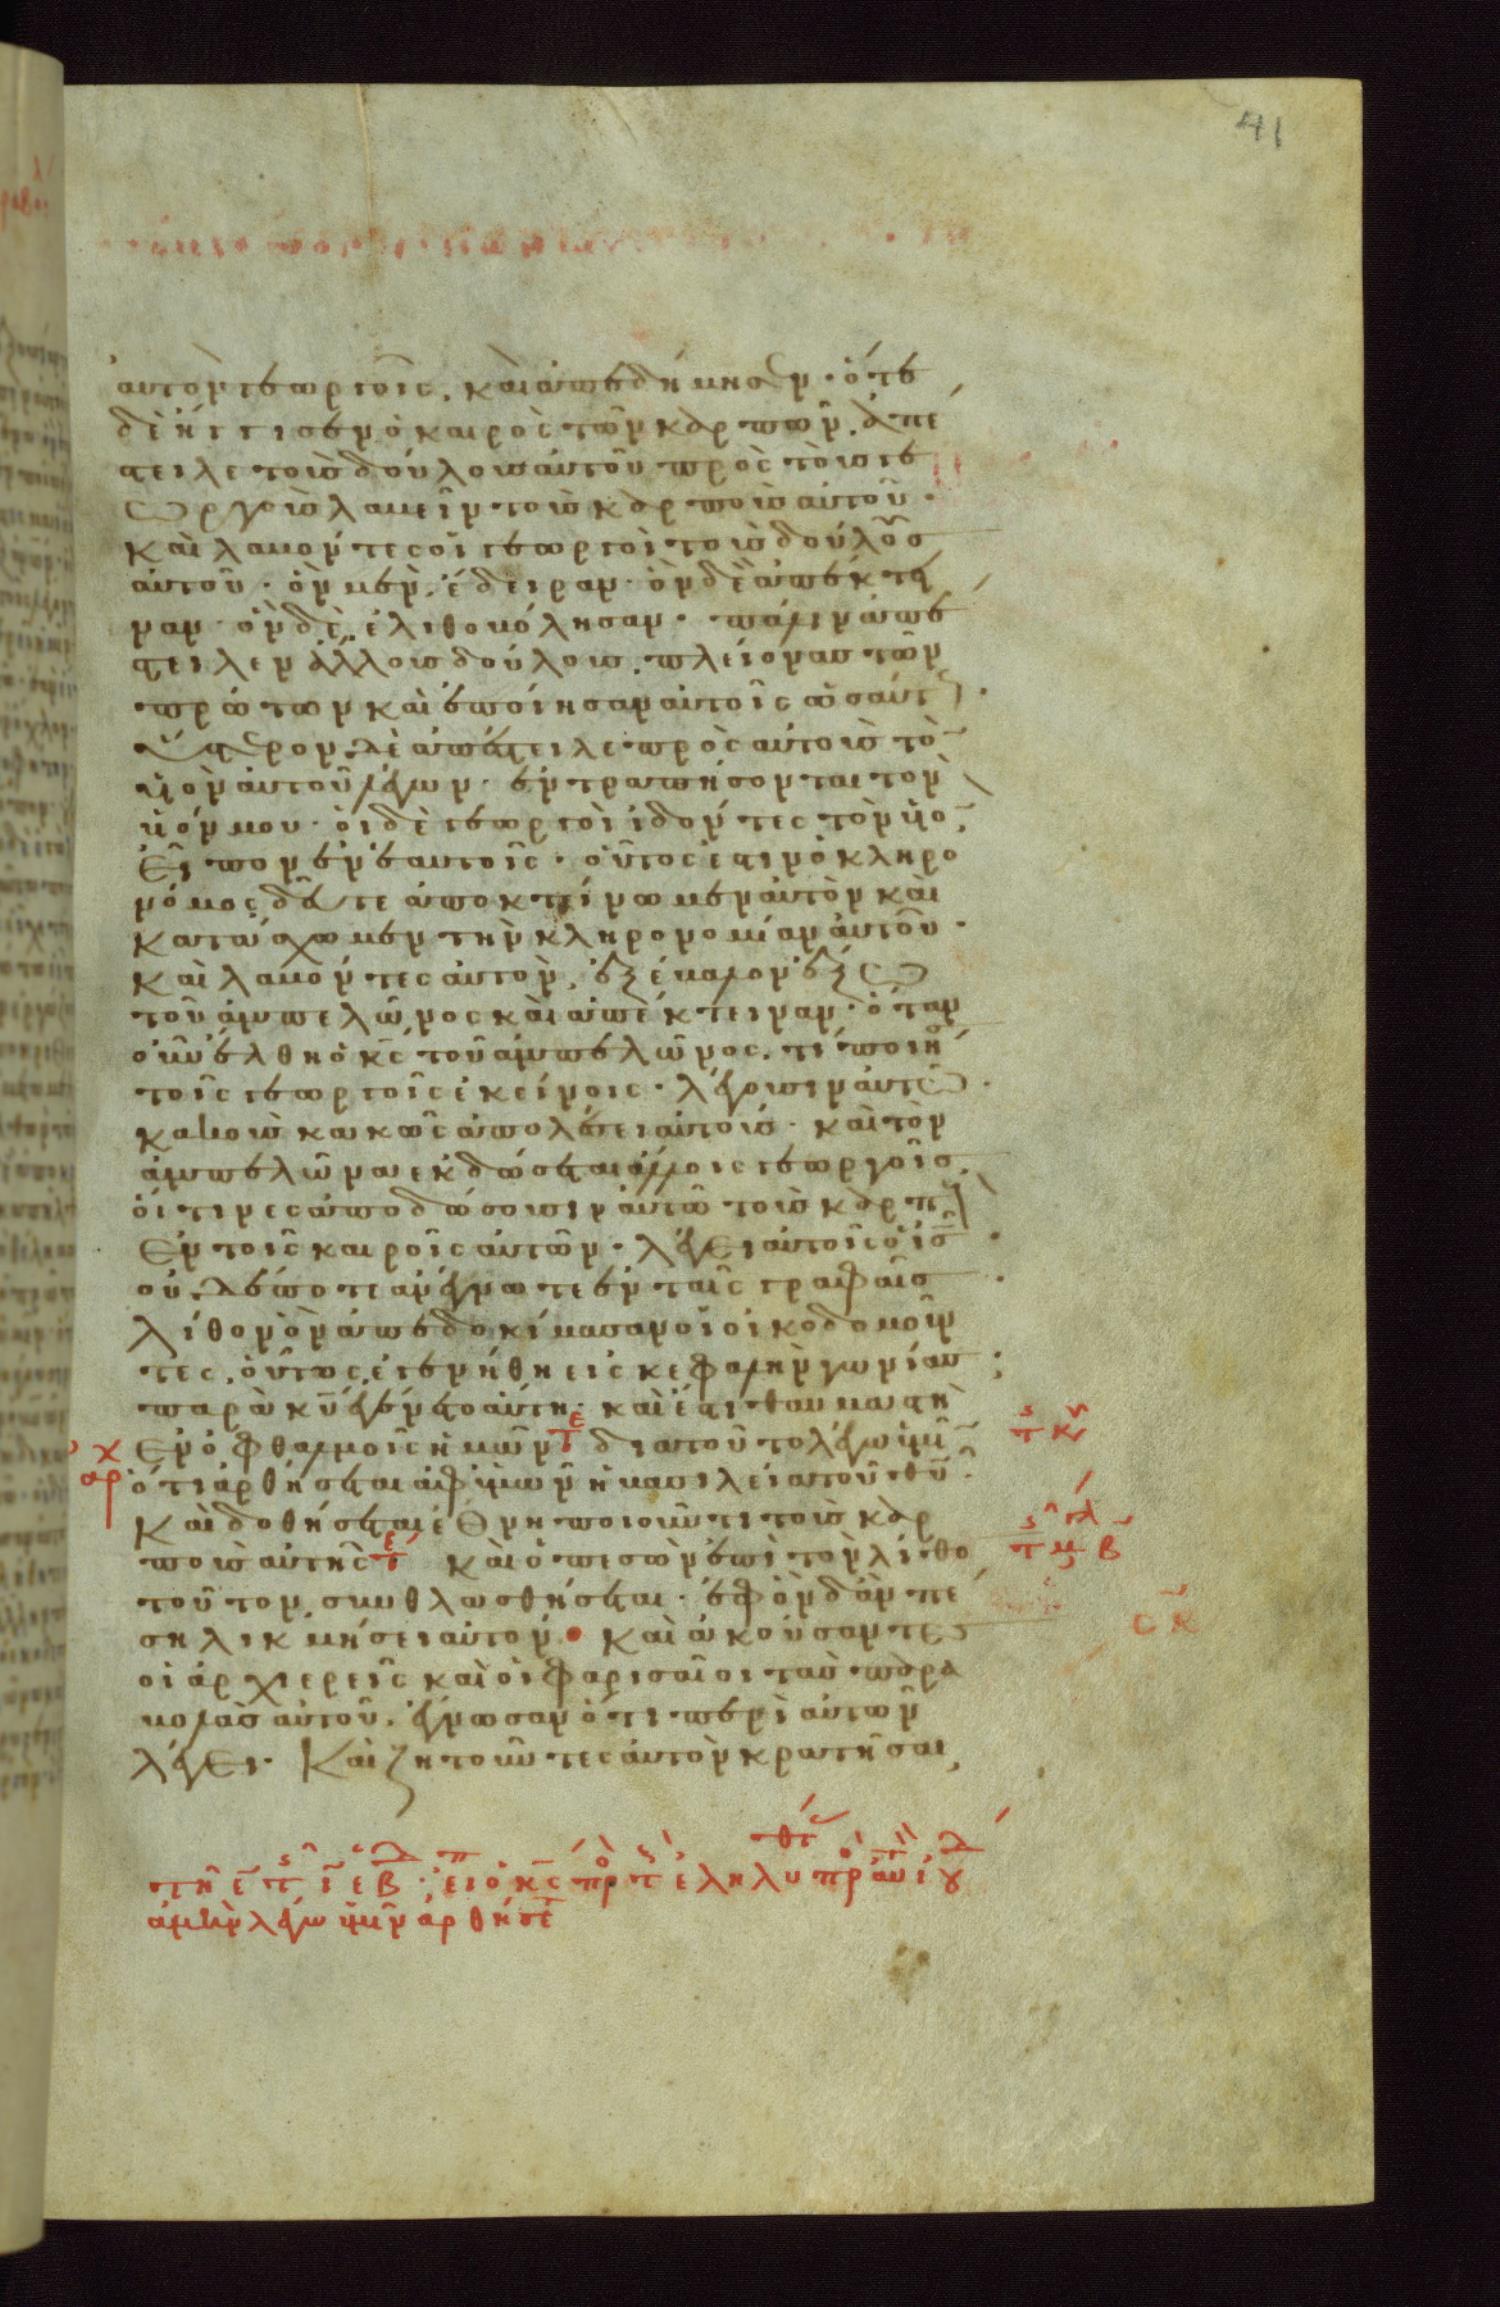 41
αὐτὸν γεωργοῖς, καὶ ἀπεδήμησεν· ὅτε
δὲ ἤγγισεν ὁ καιρὸς τῶν καρπῶν, ἀπέ
στειλε τοὺς δούλους αὐτοῦ πρὸς τοὺς γε
ωργοὺς λαβεῖν τοὺς καρποὺς αὐτοῦ·
καὶ λαβόντες οἱ γεωργοὶ τοὺς δούλους
αὐτοῦ· ὃν μὲν, ἔδειραν· ὃν δὲ ἀπέκτει
ναν· ὃν δὲ, ἐλιθοβόλησαν· πάλιν ἀπέ
στειλεν ἄλλους δούλους, πλείονας τῶν
πρώτων καὶ ἐποίησαν αὐτοῖς ὡσαύτ·
ὕστερον δὲ ἀπέστειλε πρὸς αὐτοὺς τὸ
υἱὸν αὐτοῦ λέγων· ἐντραπήσονται τὸν
υἱόν μου· οἱ δὲ γεωργοὶ ἰδόντες τὸν υἱὸ,
εἶπον ἐν ἑαυτοῖς· οὗτός ἐστιν ὁ κληρο
νόμος, δεῦτε ἀποκτείνωμεν αὐτὸν καὶ
κατάσχωμεν τὴν κληρονομίαν αὐτοῦ·
καὶ λαβόντες αὐτὸν, ἐξέβαλον ἔξω
τοῦ ἀμπελῶνος καὶ ἀπέκτειναν· ὅταν
οὖν ἔλθη ὁ κ̅ς̅ τοῦ ἀμπελῶνος, τί ποιή
τοῖς γεωργοῖς ἐκείνοις· λέγουσιν αὐτῶ·
κακοὺς κακῶς ἀπολέσει αὐτούς· καὶ τὸν
ἀμπελῶνα ἐκδώσεται ἄλλοις γεωργοῖς,
οἵτινες ἀποδώσουσιν αὐτῶ τοὺς καρπ
ἐν τοῖς καιροῖς αὐτῶν· λέγει αὐτοῖς ὁ ι̅ς̅·
οὐδέποτε ἀνέγνωτε ἐν ταῖς γραφαῖς·
λίθον ὃν ἀπεδοκίμασαν οἱ οἰκοδομοῦν
τες, οὗτος ἐγενήθη εἰς κεφαλὴν γωνίας·
παρὰ κ̅υ̅ ἐγένετο αὕτη· καὶ ἔστι θαυμαστὴ
ἐν ὀφθαλμοῖς ἡμῶν τε διατοῦτο λέγω ὑμῖ
ὅτι ἀρθήσεται ἀφ ὑμῶν ἡ βασιλεία τοῦ θ̅υ̅·
καὶ δοθήσεται ἔθνη ποιοῦντι τοὺς καρ
ποὺς αὐτῆς τε καὶ ὁ πεσὼν ἐπὶ τὸν λίθο
τοῦτον, συνθλασθήσεται· ἐφ ὃν δ ἂν πέ
ση λικμήσει αὐτόν· καὶ ἀκούσαντες
οἱ ἀρχιερεῖς καὶ οἱ φαρισαῖοι τὰς παρα
βολὰς αὐτοῦ, ἔγνωσαν ὅτι περὶ αὐτῶν
λέγει· καὶ ζητοῦντες αὐτὸν κρατῆσαι,
ἀμὴν λέγω ὑμῖν ἀρθήσετ